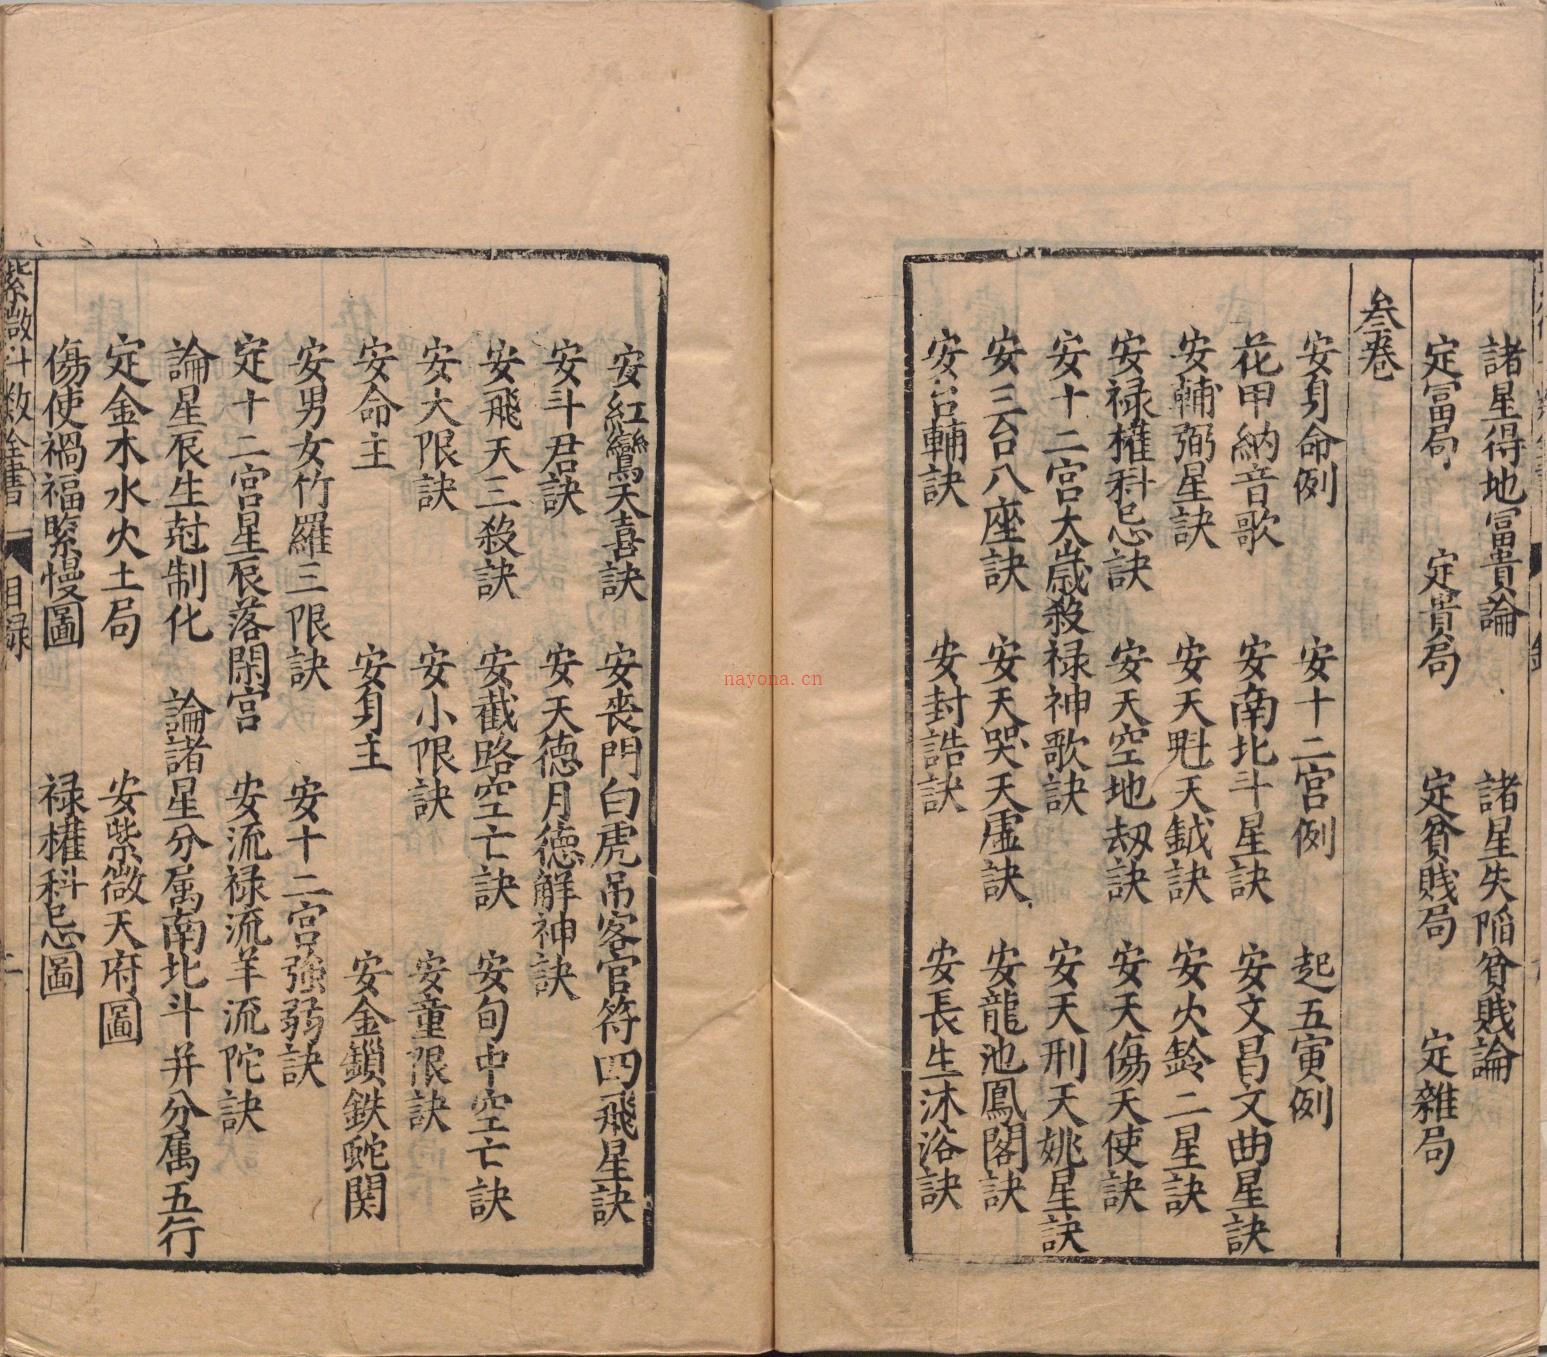 諸星得地冨貴論 諸星失陷貧賎論
定冨局 定貴局 定貧賎局 定雜局
叁卷
安身命例 安十二宫例 起五寅例
花甲納音歌 安南北斗星訣 安文昌文曲星訣
安輔弼星訣 安天魁天鉞訣 安火鈴二星訣
安禄權科忌訣 安天空地刼訣 安天傷天使訣
安十二宫太歲殺禄神歌訣 安天刑天姚星訣
安三台八座訣 安天哭天虚訣 安龍池鳳閣訣
安台輔訣 安封誥訣 安長生沐浴訣
安紅鸞天喜訣 安喪門白虎吊客官符四飛星訣
安斗君訣 安天德月德解神訣
安飛天三殺訣 安截路空亡訣 安旬中空亡訣
安大限訣 安小限訣 安童限訣
安命主 安身主 安金鎖鉄蛇関
安男女竹羅三限訣 安十二宫強弱訣
定十二宫星辰落閑宫 安流禄流羊流陀訣
論星辰生尅制化 論諸星分属南北斗并分属五行
定金木水火土局 安紫微天府圖
傷使禍福緊慢圖 禄權科忌圖
紫微斗数全書 目録 二
nayona.cn